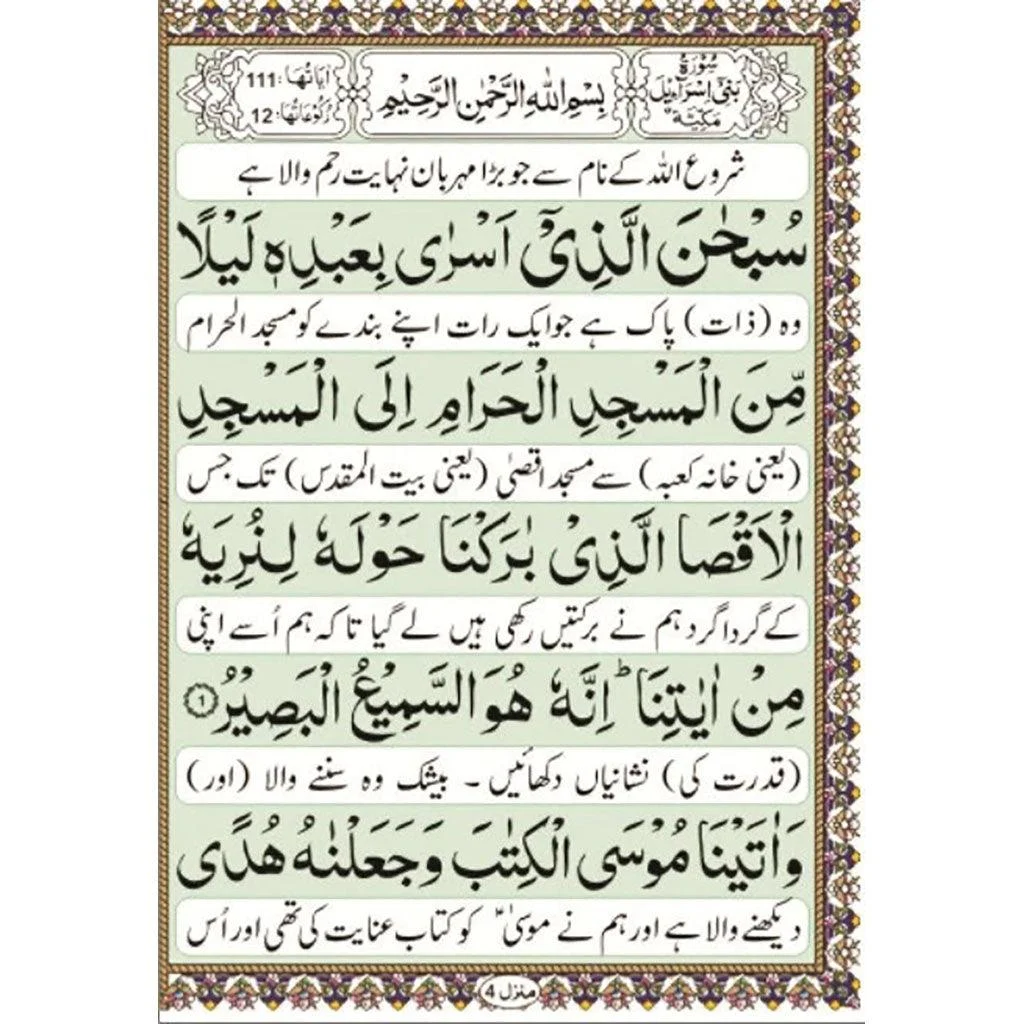 سُوْرَةُ
بَنِیْۤ اِسْرَآءِیْلَ
مَكِّيَّةٌ
بِسْمِ اللّٰهِ الرَّحْمٰنِ الرَّحِیْمِ
اٰیَاتُهَا: 111
رُكُوْعَاتُهَا: 12
شروع اللہ کے نام سے جو بڑا مہربان نہایت رحم والا ہے
سُبْحٰنَ الَّذِیْۤ اَسْرٰی بِعَبْدِهٖ لَیْلًا
وہ (ذات) پاک ہے جو ایک رات اپنے بندے کو مسجد الحرام
مِّنَ الْمَسْجِدِ الْحَرَامِ اِلَی الْمَسْجِدِ
(یعنی خانہ کعبہ) سے مسجد اقصیٰ (یعنی بیت المقدس) تک جس
الْاَقْصَا الَّذِیْ بٰرَكْنَا حَوْلَهٗ لِنُرِیَهٗ
کے گردا گرد ہم نے برکتیں رکھی ہیں لے گیا تاکہ ہم اُسے اپنی
مِنْ اٰیٰتِنَا ؕ اِنَّهٗ هُوَ السَّمِیْعُ الْبَصِیْرُ ۱
(قدرت کی) نشانیاں دکھائیں۔ بیشک وہ سننے والا (اور)
وَاٰتَیْنَا مُوْسَی الْكِتٰبَ وَجَعَلْنٰهُ هُدًی
دیکھنے والا ہے اور ہم نے موسیٰؑ کو کتاب عنایت کی تھی اور اُس
منزل 4